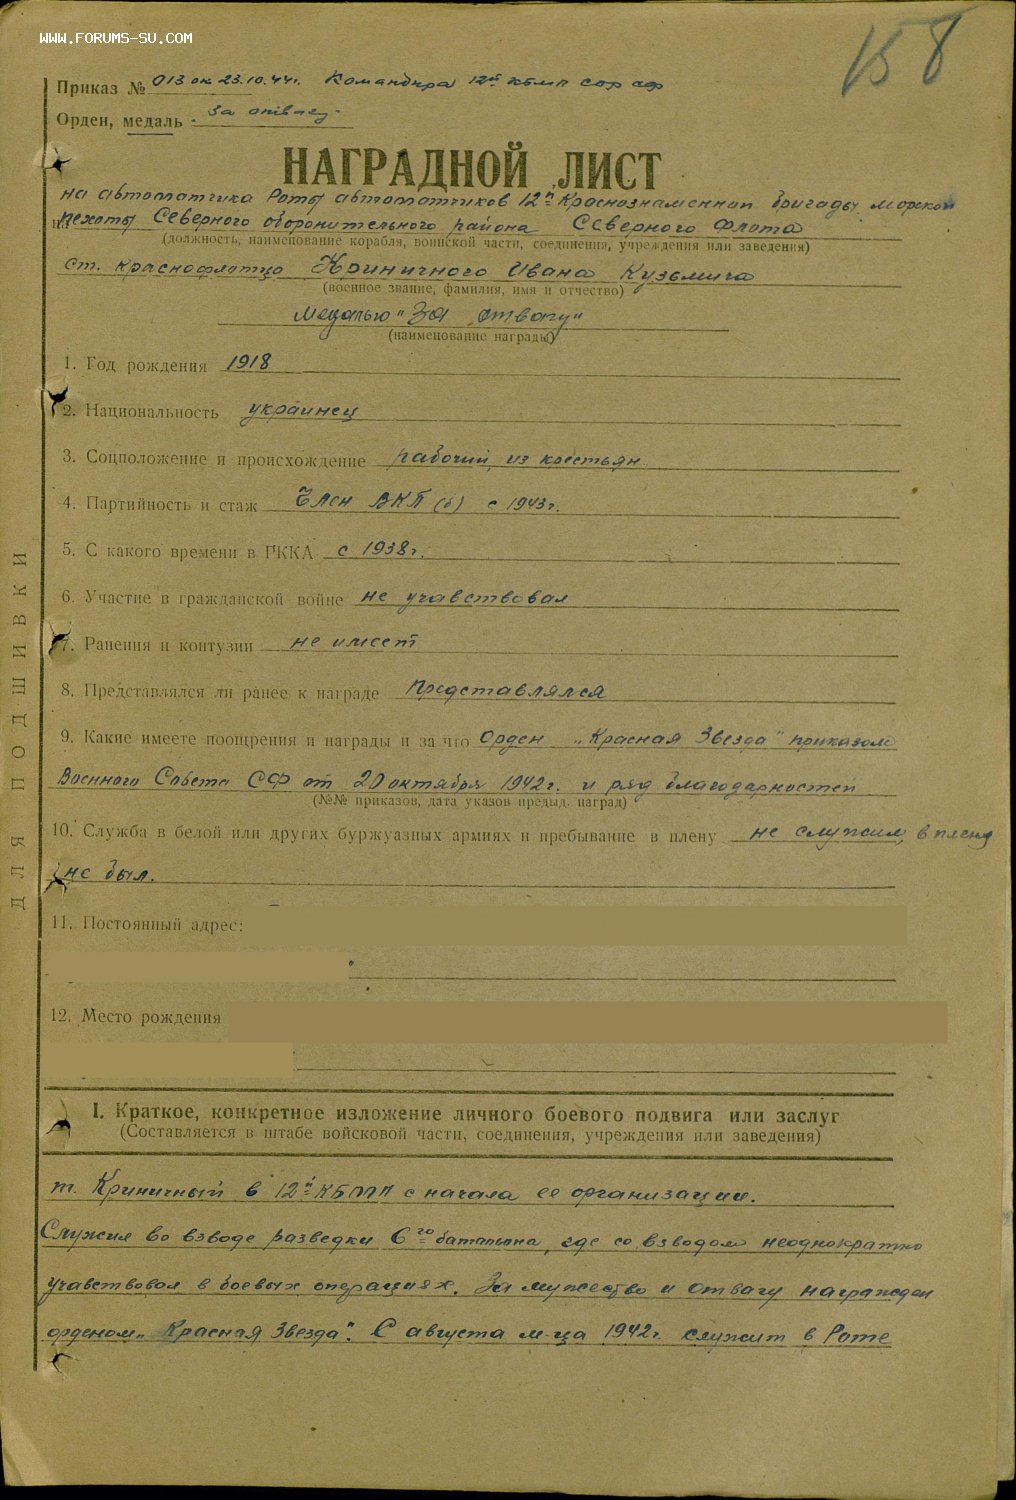 WWW.FORUMS-SU.COM
158
Приказ № 013 от 23.10.44г. Командира 12й КБМП СОР СФ
Орден, медаль "За отвагу"
НАГРАДНОЙ ЛИСТ
на автоматчика Роты автоматчиков 12й Краснознаменной бригады морской
на пехоты Северного оборонительного района Северного Флота
(должность, наименование корабля, воинской части, соединения, учреждения или заведения)
ст. краснофлотца Криничного Ивана Кузьмича
(военное звание, фамилия, имя и отчество)
Медалью "За отвагу"
(наименование награды)
1. Год рождения 1918
2. Национальность украинец
3. Соцположение и происхождение рабочий, из крестьян
4. Партийность и стаж Член ВКП(б) с 1943г.
5. С какого времени в РККА с 1938г.
6. Участие в гражданской войне не учавствовал
7. Ранения и контузии не имеет
8. Представлялся ли ранее к награде представлялся
9. Какие имеете поощрения и награды и за что Орден „Красная Звезда" приказом
Военного Совета СФ от 20 октября 1942г. и ряд благодарностей
(№№ приказов, дата указов предыд. наград)
10. Служба в белой или других буржуазных армиях и пребывание в плену не служил, в плену
не был.
11. Постоянный адрес:
12. Место рождения
I. Краткое, конкретное изложение личного боевого подвига или заслуг
(Составляется в штабе войсковой части, соединения, учреждения или заведения)
т. Криничный в 12й КБМП с начала ее организации.
Служил во взводе разведки 6го баталиона, где со взводом неоднократно
учавствовал в боевых операциях. За мужество и отвагу награжден
орденом „Красная Звезда". С августа м-ца 1942г. служит в Роте
ДЛЯ ПОДШИВКИ